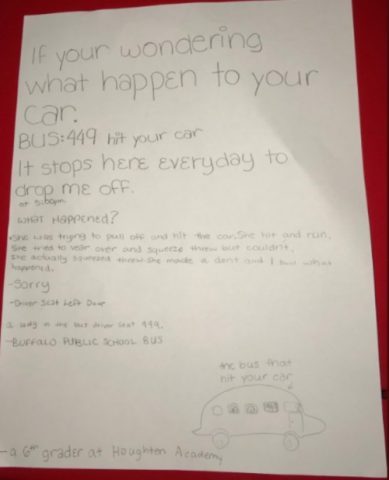 If your wondering
what happen to your
car.
BUS:449 hit your car
It stops here everyday to
drop me off.
at 5:00pm
What Happened?
-She was trying to pull off and hit the car. She hit and run.
She tried to vear over and squeeze threw but couldnt.
She actually squeezed threw. She made a dent and I saw what
happened.
-Sorry
-Driver Seat Left Door
a lady in the bus driver seat 449.
-BUFFALO PUBLIC SCHOOL BUS
the bus that
hit your car
-a 6th grader at Houghton Academy